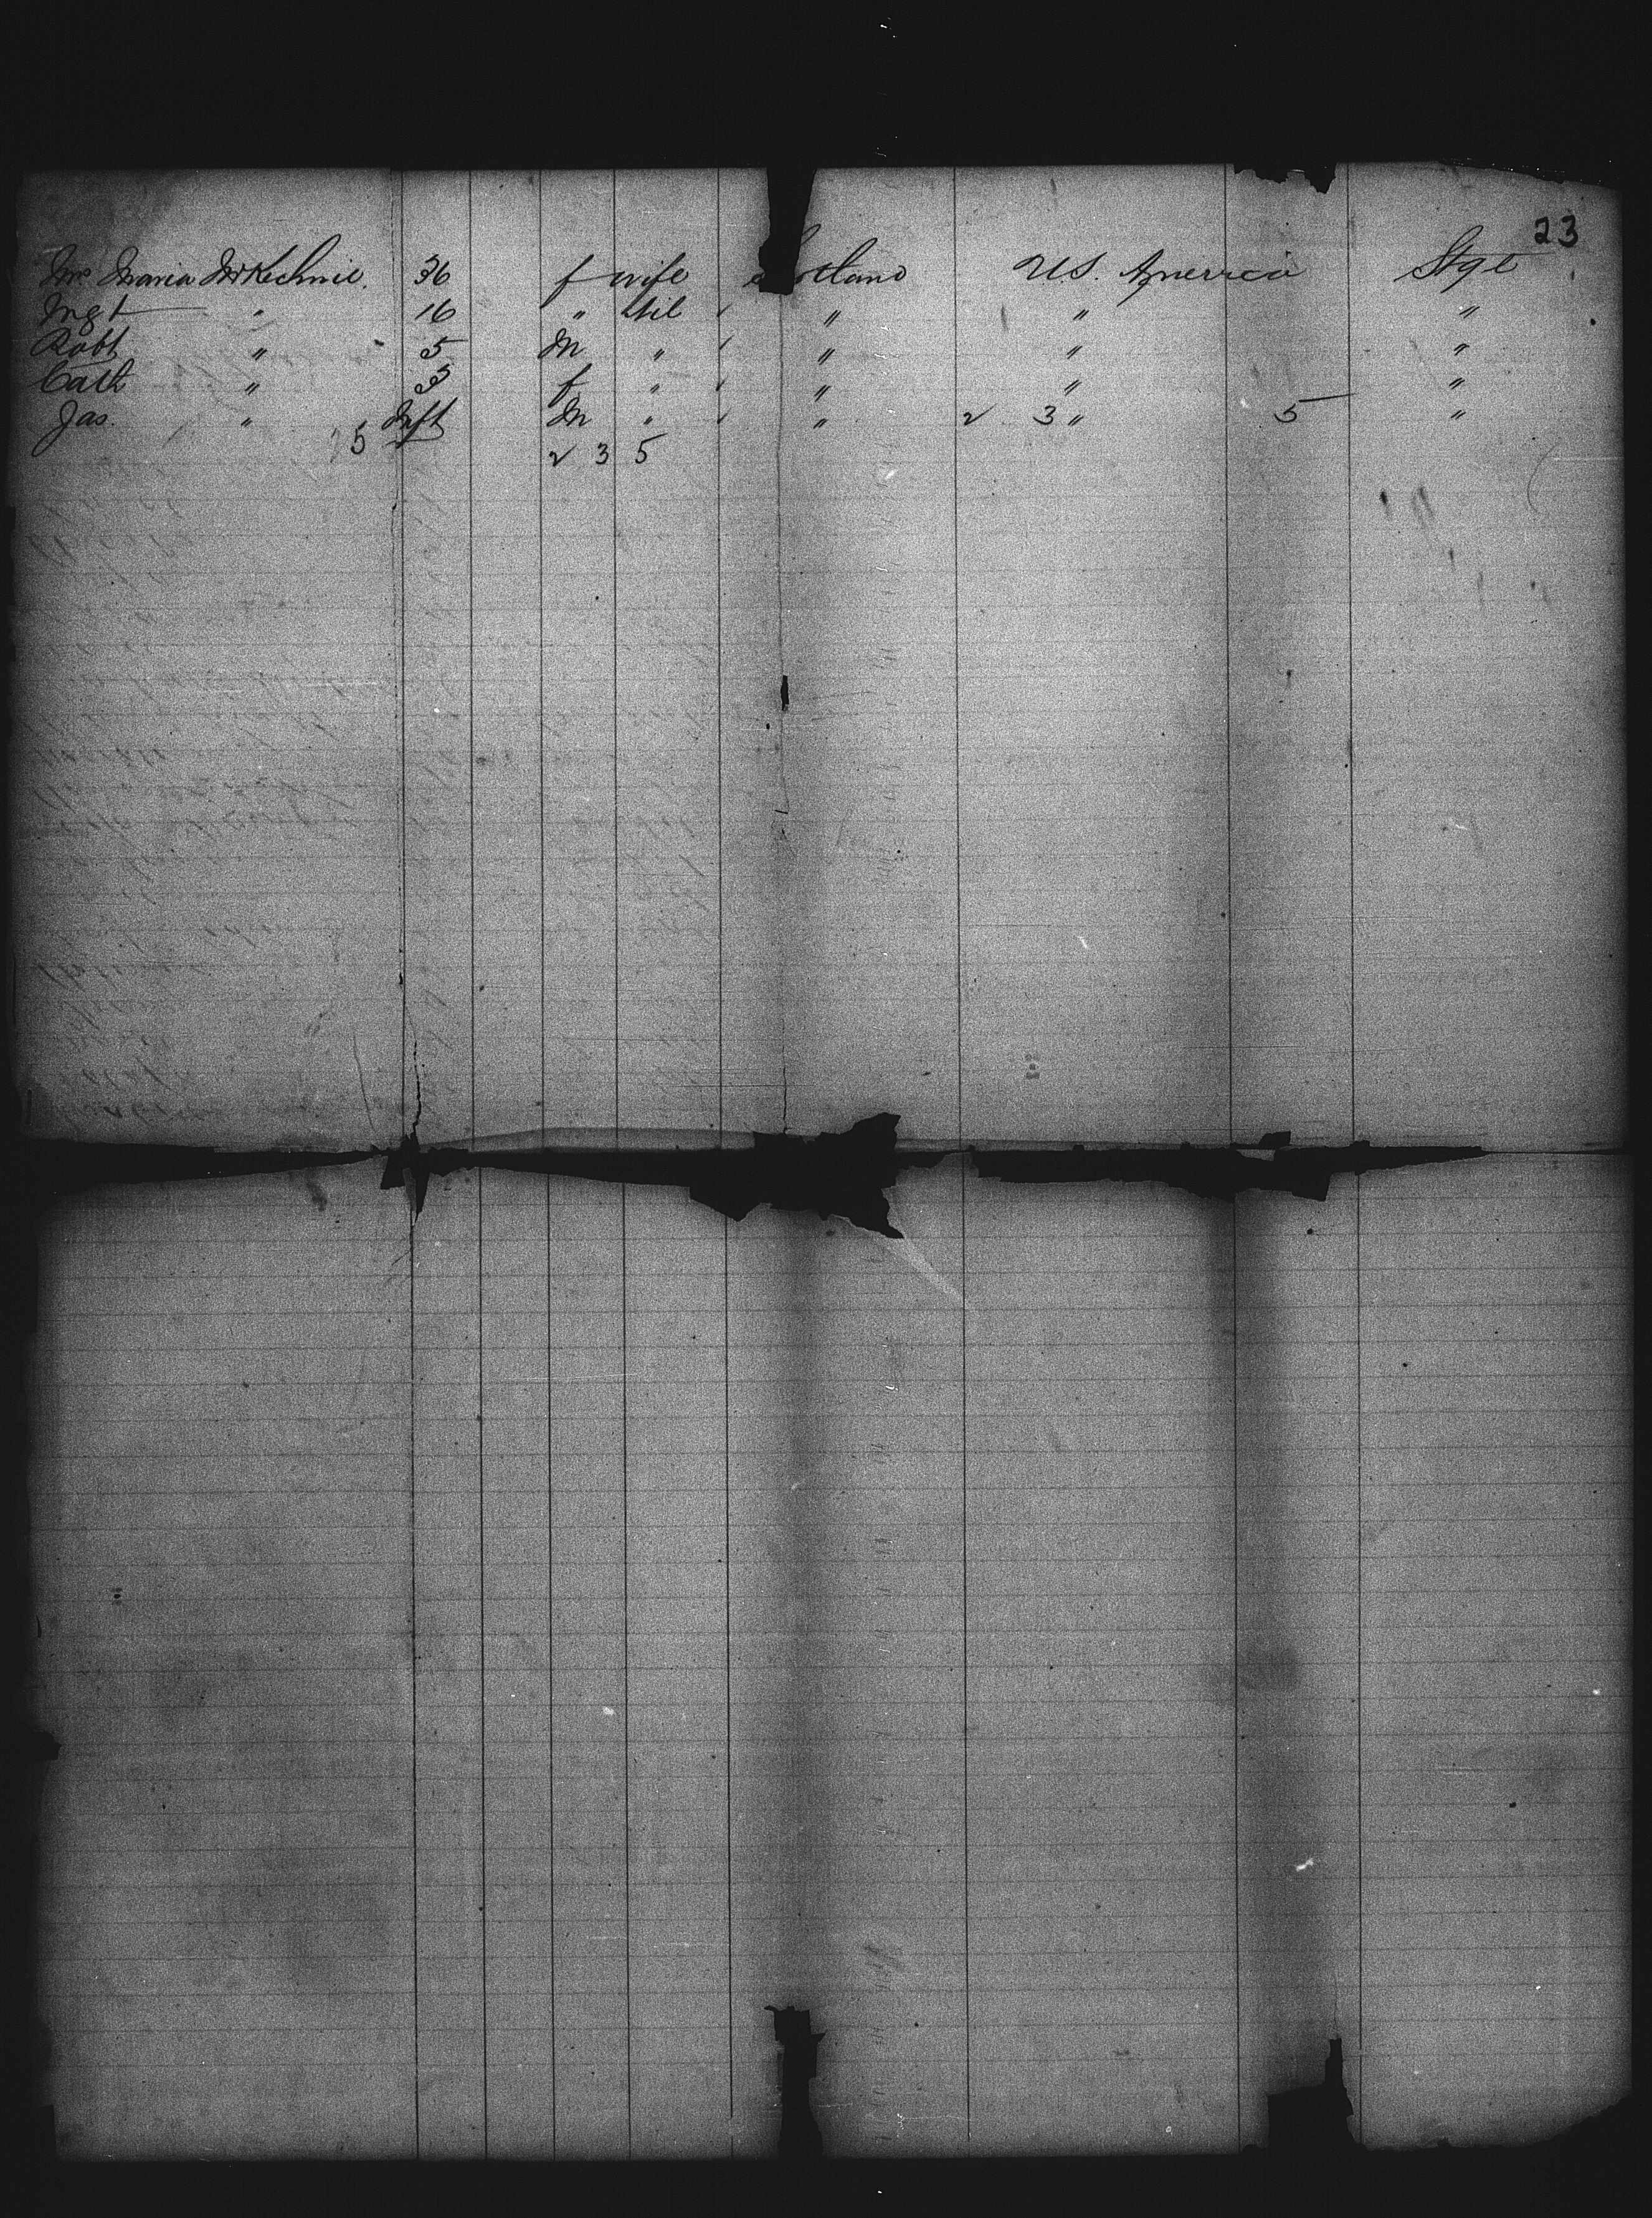 23
Mrs Maria McKechnie. 36 f wife Scotland U.S. America Stge
Mgt " 16 " Nil " " "
Robt " 5 M " " " "
Cath " 3 f " " " "
Jas. " Inft M " " 2 3 " 5 "
5 2 3 5